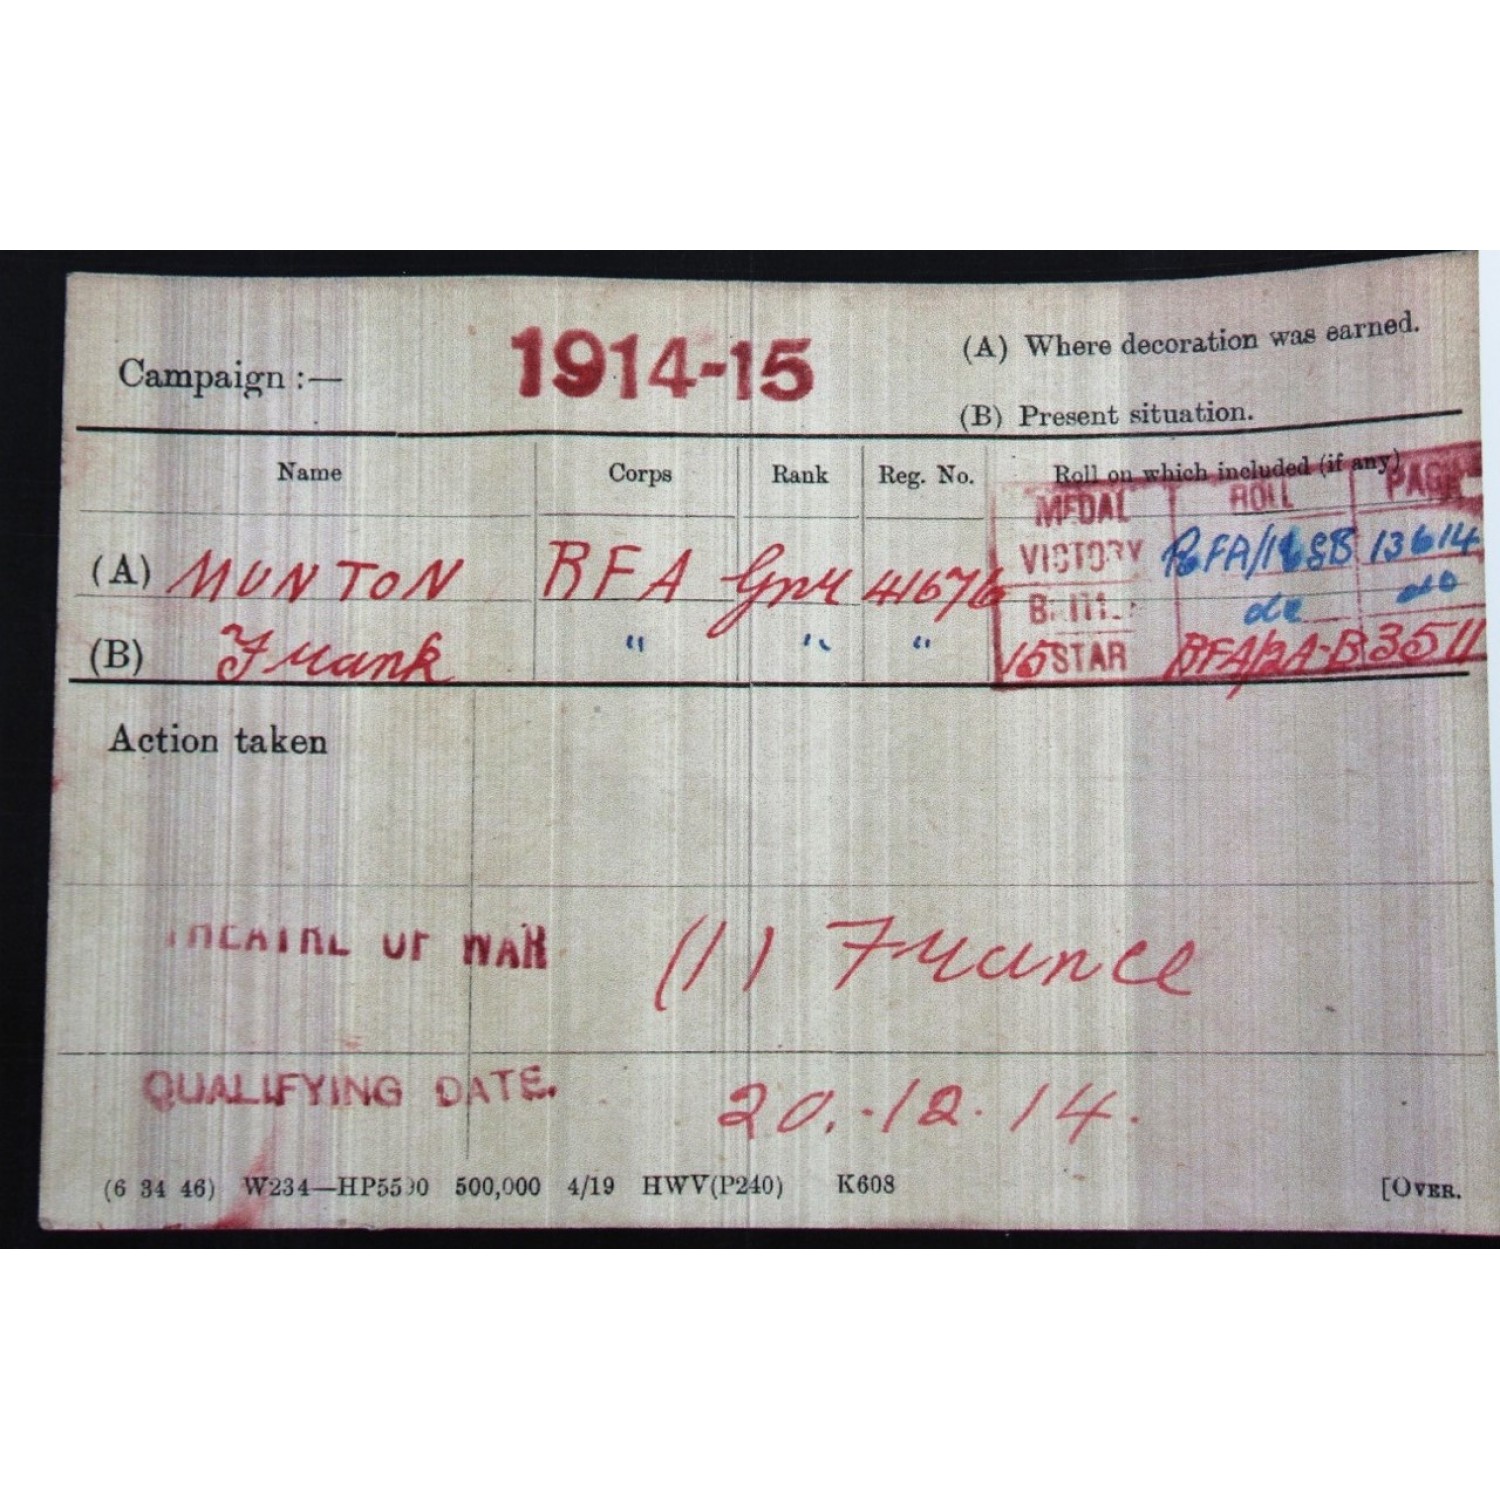 Campaign :— 1914-15 (A) Where decoration was earned.
(B) Present situation.
Name Corps Rank Reg. No. Roll on which included (if any)
MEDAL ROLL PAGE
(A) MUNTON RFA Gnr 41676 VICTORY RFA/168B 13614
do do
(B) Frank " " " 15 STAR RFA/2A-B 3511
Action taken
THEATRE OF WAR (1) France
QUALIFYING DATE. 20.-12.14.
(6 34 46) W234—HP5590 500,000 4/19 HWV(P240) K608 [OVER.